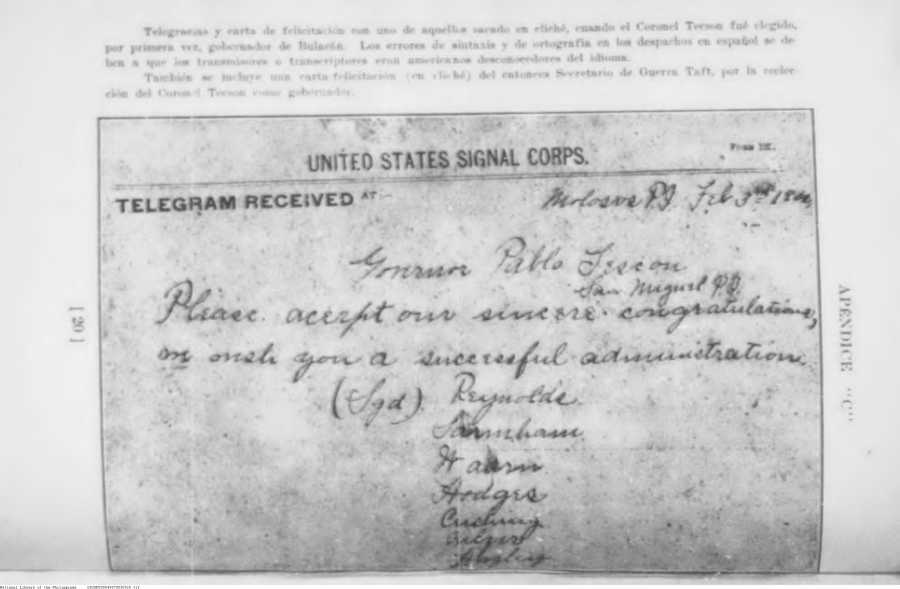 Telegramas y carta de felicitación son uno de aquellos sacado en cliché, cuando el Coronel Tecson fué elegido,
por primera vez, gobernador de Bulacán. Los errores de sintaxis y de ortografía en los despachos en español se de-
ben a que los transmisores o transcriptores eran americanos desconocedores del idioma.
También se incluye una carta-felicitación (en cliché) del entonces Secretario de Guerra Taft, por la reelec-
ción del Coronel Tecson como gobernador.
UNITED STATES SIGNAL CORPS.
TELEGRAM RECEIVED AT
Feb 3rd
Governor Pablo Tescon
San Miguel P.I.
Please accept our sincere congratulations,
wish you a successful administration
(Sgd) Reynolds
Hodges
Cushing
[ 20 ]
APENDICE "C"